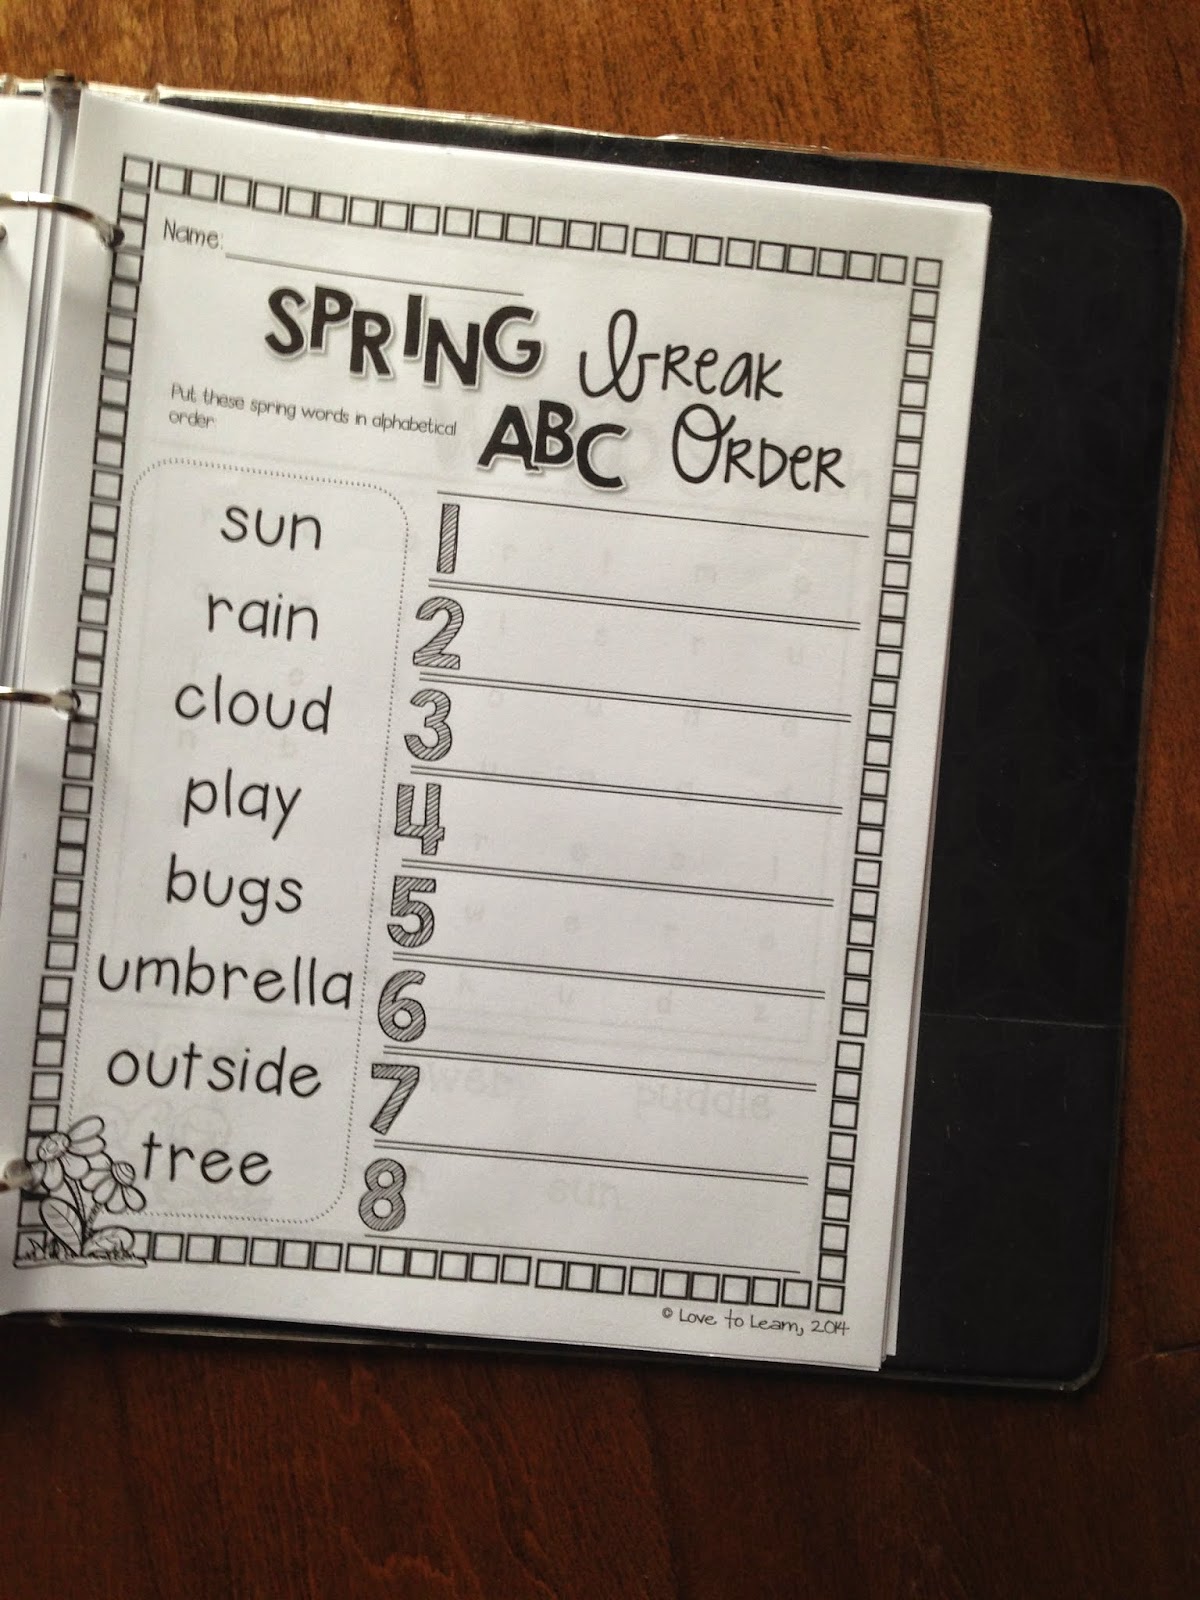 Name:
SPRING break
ABC ORDER
Put these spring words in alphabetical
order.
sun
rain
cloud
play
bugs
umbrella
outside
tree
1
2
3
4
5
6
7
8
puddle
sun
© Love to Learn, 2014